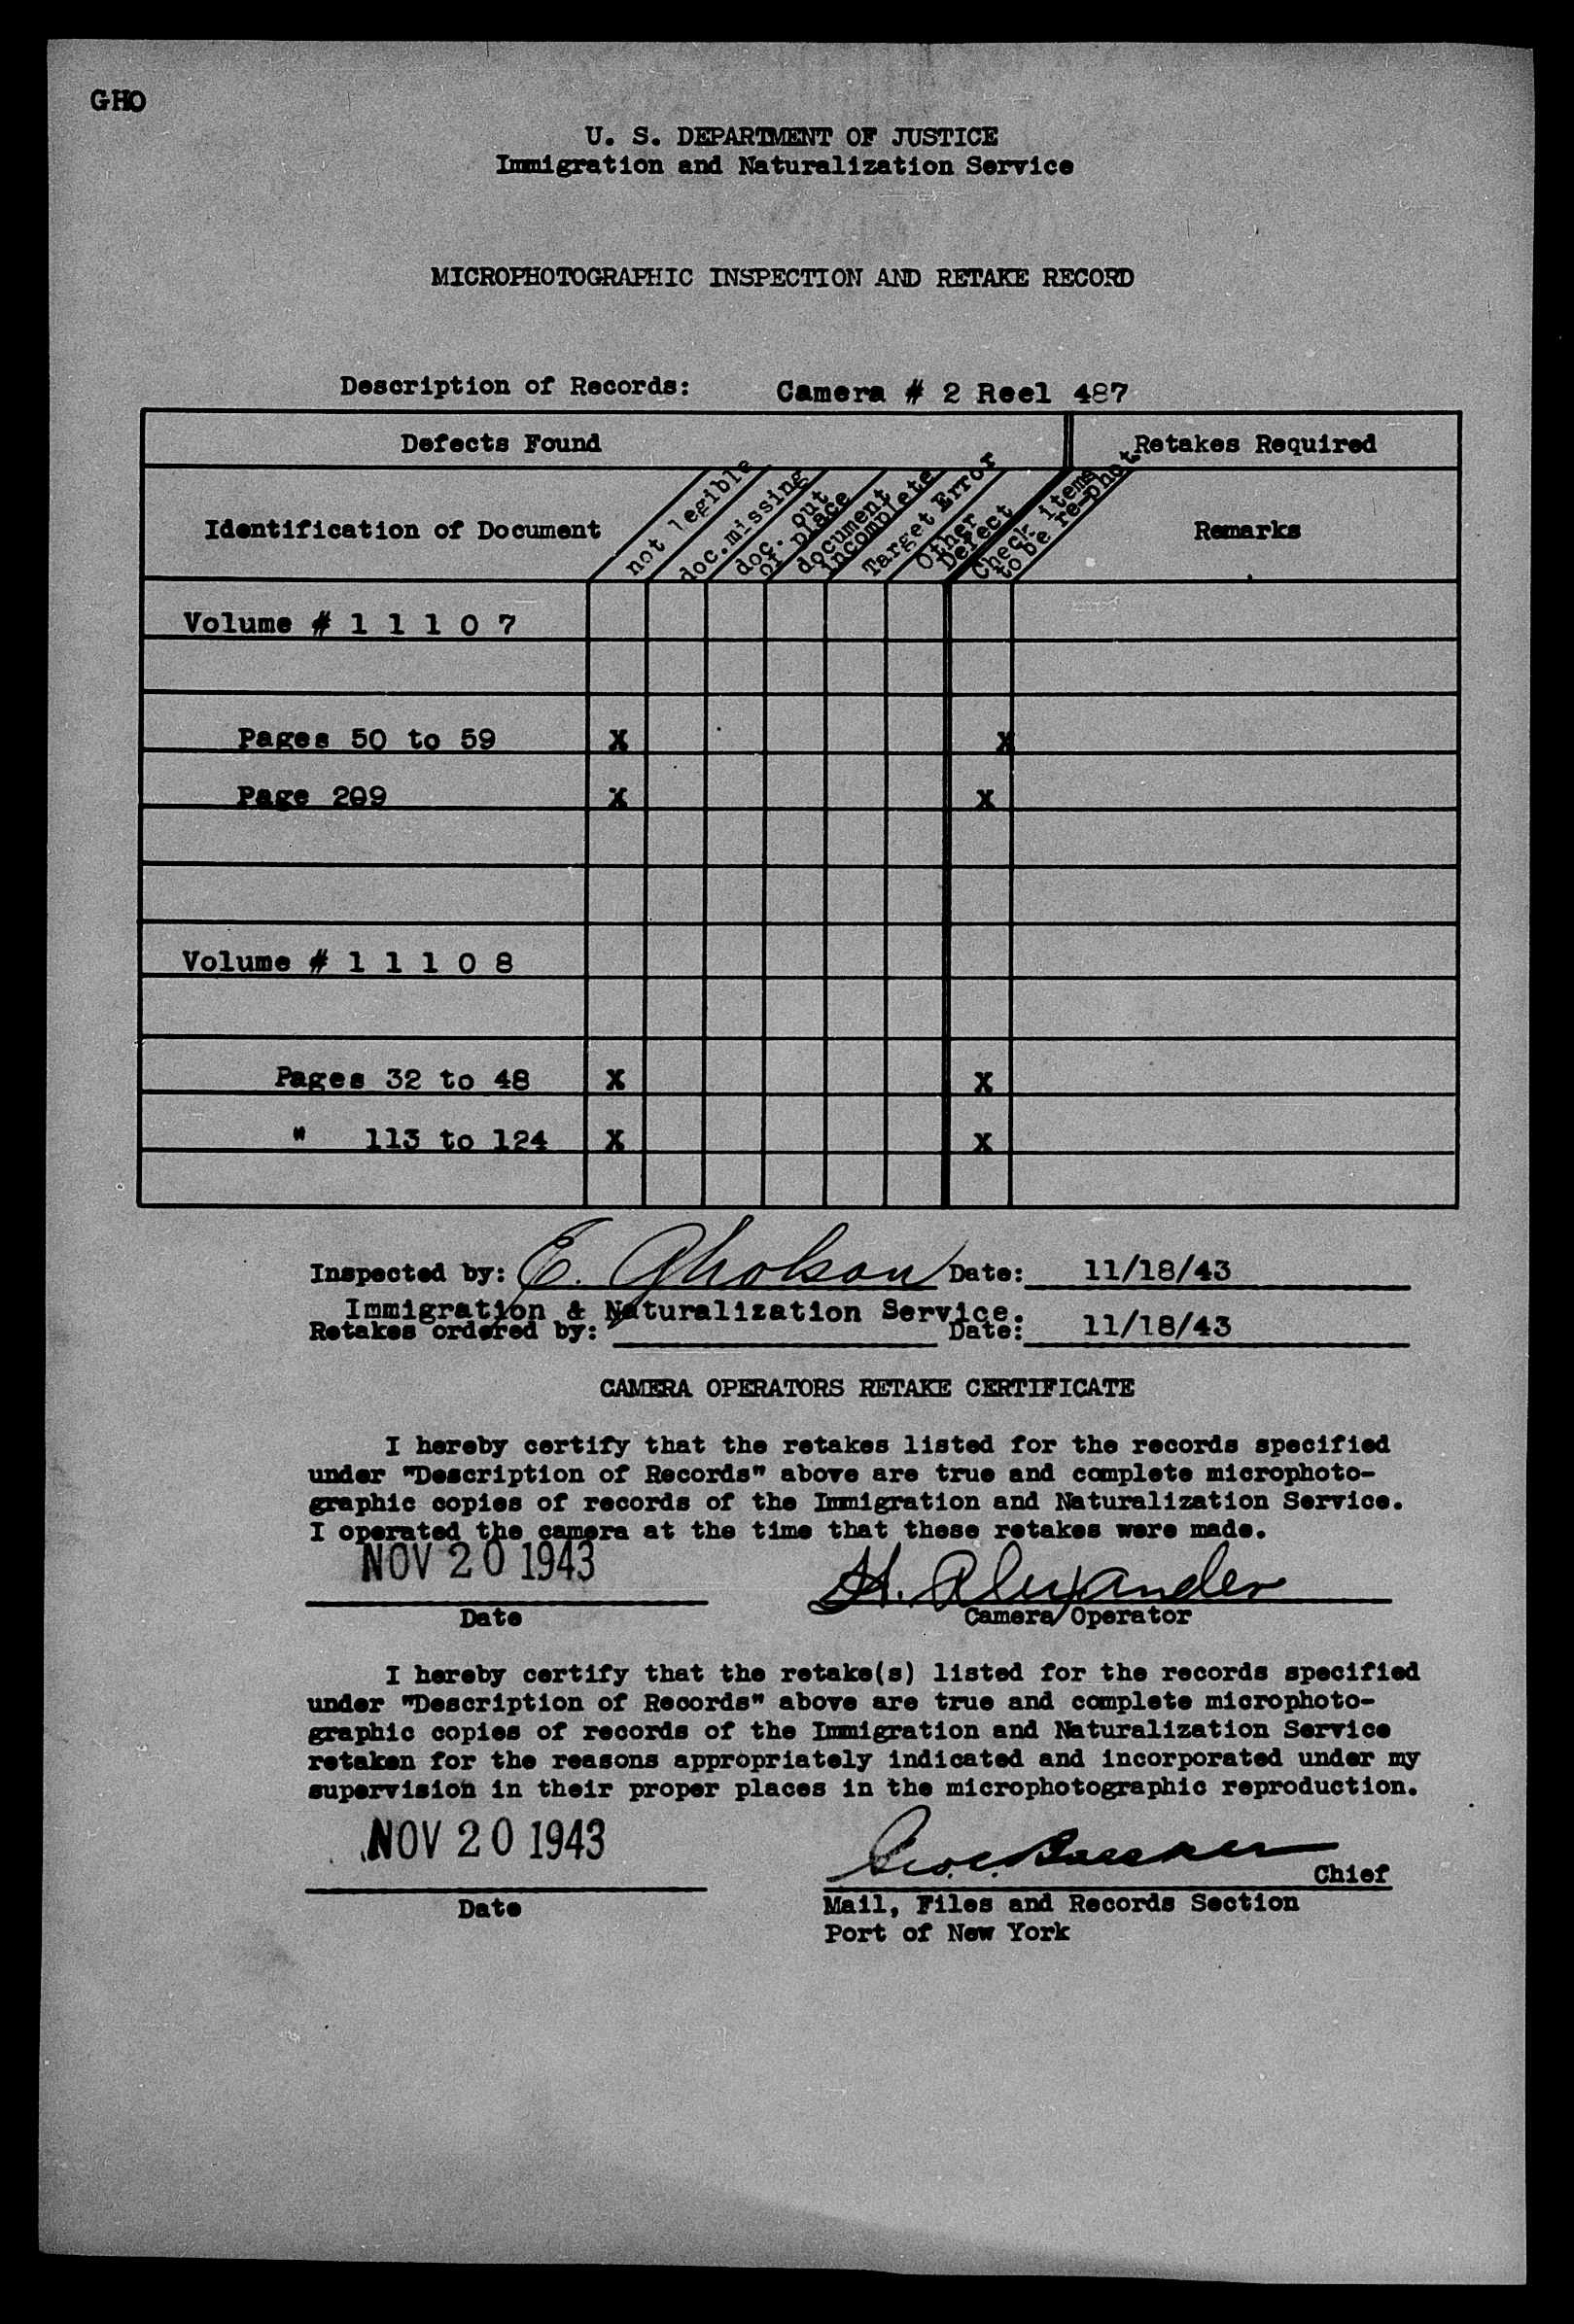 GHO
U. S. DEPARTMENT OF JUSTICE
Immigration and Naturalization Service
MICROPHOTOGRAPHIC INSPECTION AND RETAKE RECORD
Description of Records: Camera # 2 Reel 487
Defects Found Retakes Required
Identification of Document not legible doc.missing doc. out of place document incomplete Target Error Other Defect Check items to be re-phot Remarks
Volume # 1 1 1 0 7
Pages 50 to 59 X X
Page 209 X X
Volume # 1 1 1 0 8
Pages 32 to 48 X X
" 113 to 124 X X
Inspected by: E. Gholson Date: 11/18/43
Immigration & Naturalization Service.
Retakes ordered by: Date: 11/18/43
CAMERA OPERATORS RETAKE CERTIFICATE
I hereby certify that the retakes listed for the records specified
under "Description of Records" above are true and complete microphoto-
graphic copies of records of the Immigration and Naturalization Service.
I operated the camera at the time that these retakes were made.
NOV 20 1943 H. Alexander
Date Camera Operator
I hereby certify that the retake(s) listed for the records specified
under "Description of Records" above are true and complete microphoto-
graphic copies of records of the Immigration and Naturalization Service
retaken for the reasons appropriately indicated and incorporated under my
supervision in their proper places in the microphotographic reproduction.
NOV 20 1943
Chief
Date Mail, Files and Records Section
Port of New York